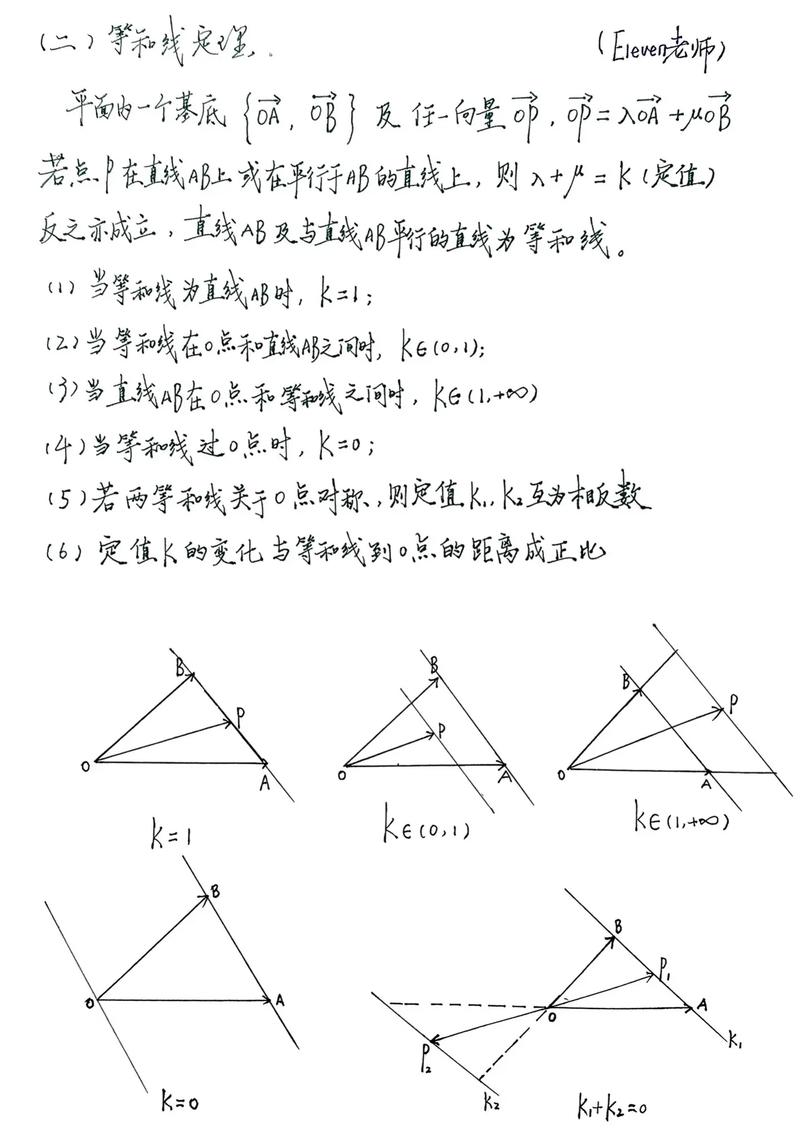 (二) 等和线定理. (Eleven老师)
平面内一个基底 {\overrightarrow{OA}, \overrightarrow{OB}} 及任一向量\overrightarrow{OP}, \overrightarrow{OP}=λ\overrightarrow{OA}+μ\overrightarrow{OB}
若点P在直线AB上或在平行于AB的直线上, 则λ+μ=K(定值)
反之亦成立, 直线AB及与直线AB平行的直线为等和线。
(1) 当等和线为直线AB时, K=1;
(2) 当等和线在O点和直线AB之间时, K∈(0,1);
(3) 当直线AB在O点和等和线之间时, K∈(1,+∞)
(4) 当等和线过O点时, K=0;
(5) 若两等和线关于O点对称, 则定值K₁, K₂互为相反数
(6) 定值K的变化与等和线到O点的距离成正比
B P O A
K=1
B P O A
K∈(0,1)
B P O A
K∈(1,+∞)
B O A
K=0
B P₁ O A K₁ P₂ K₂
K₁+K₂=0